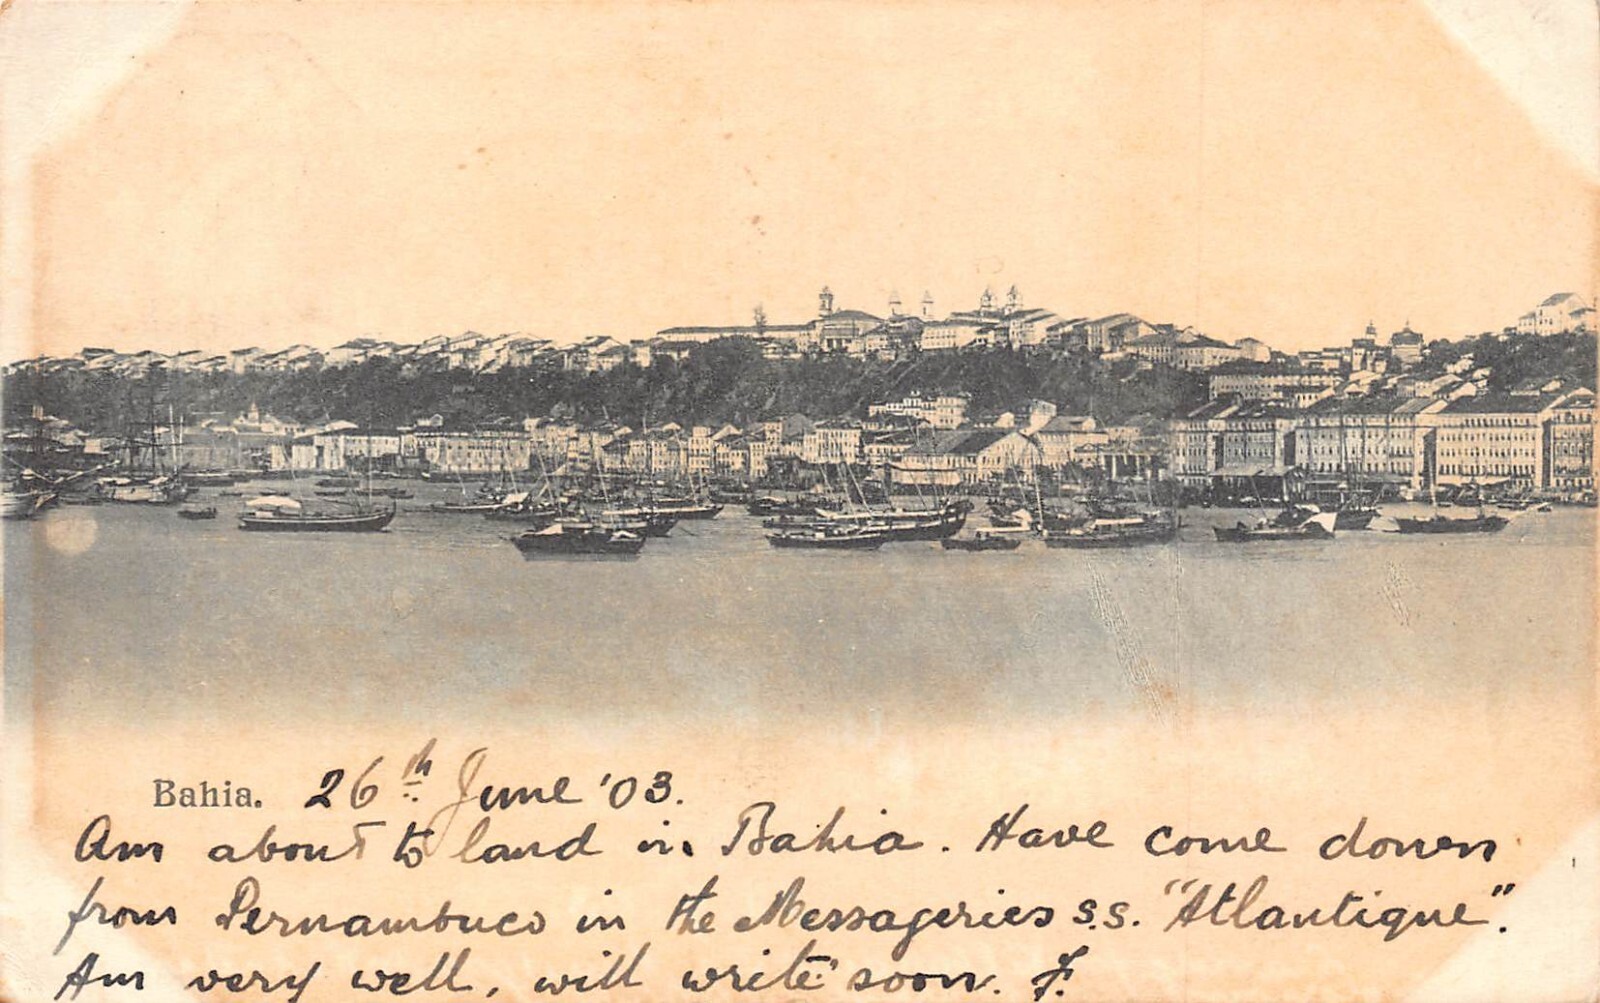 Bahia. 26th June '03.
Am about to land in Bahia. Have come down
from Pernambuco in the Messageries s.s. "Atlantique".
Am very well, will write soon. F.